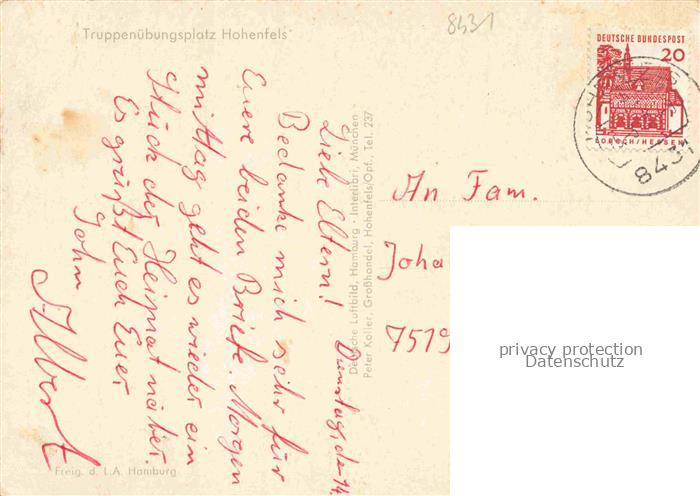 'Truppenübungsplatz Hohenfels'
8431
DEUTSCHE BUNDESPOST
20
LORSCH/HESSEN
8431
Dienstag, den 14.
Liebe Eltern!
Bedanke mich sehr für
Euere beiden Briefe. Morgen
mittag geht es wieder ein
Stück der Heimat näher.
Es grüßt Euch Euer
Sohn
Albert
Deutsche Luftbild, Hamburg · Interlibri, München
Peter Koller, Großhandel, Hohenfels/Opf., Tel. 237
An Fam.
Joha
7519
privacy protection
Datenschutz
Freig. d. L.A. Hamburg